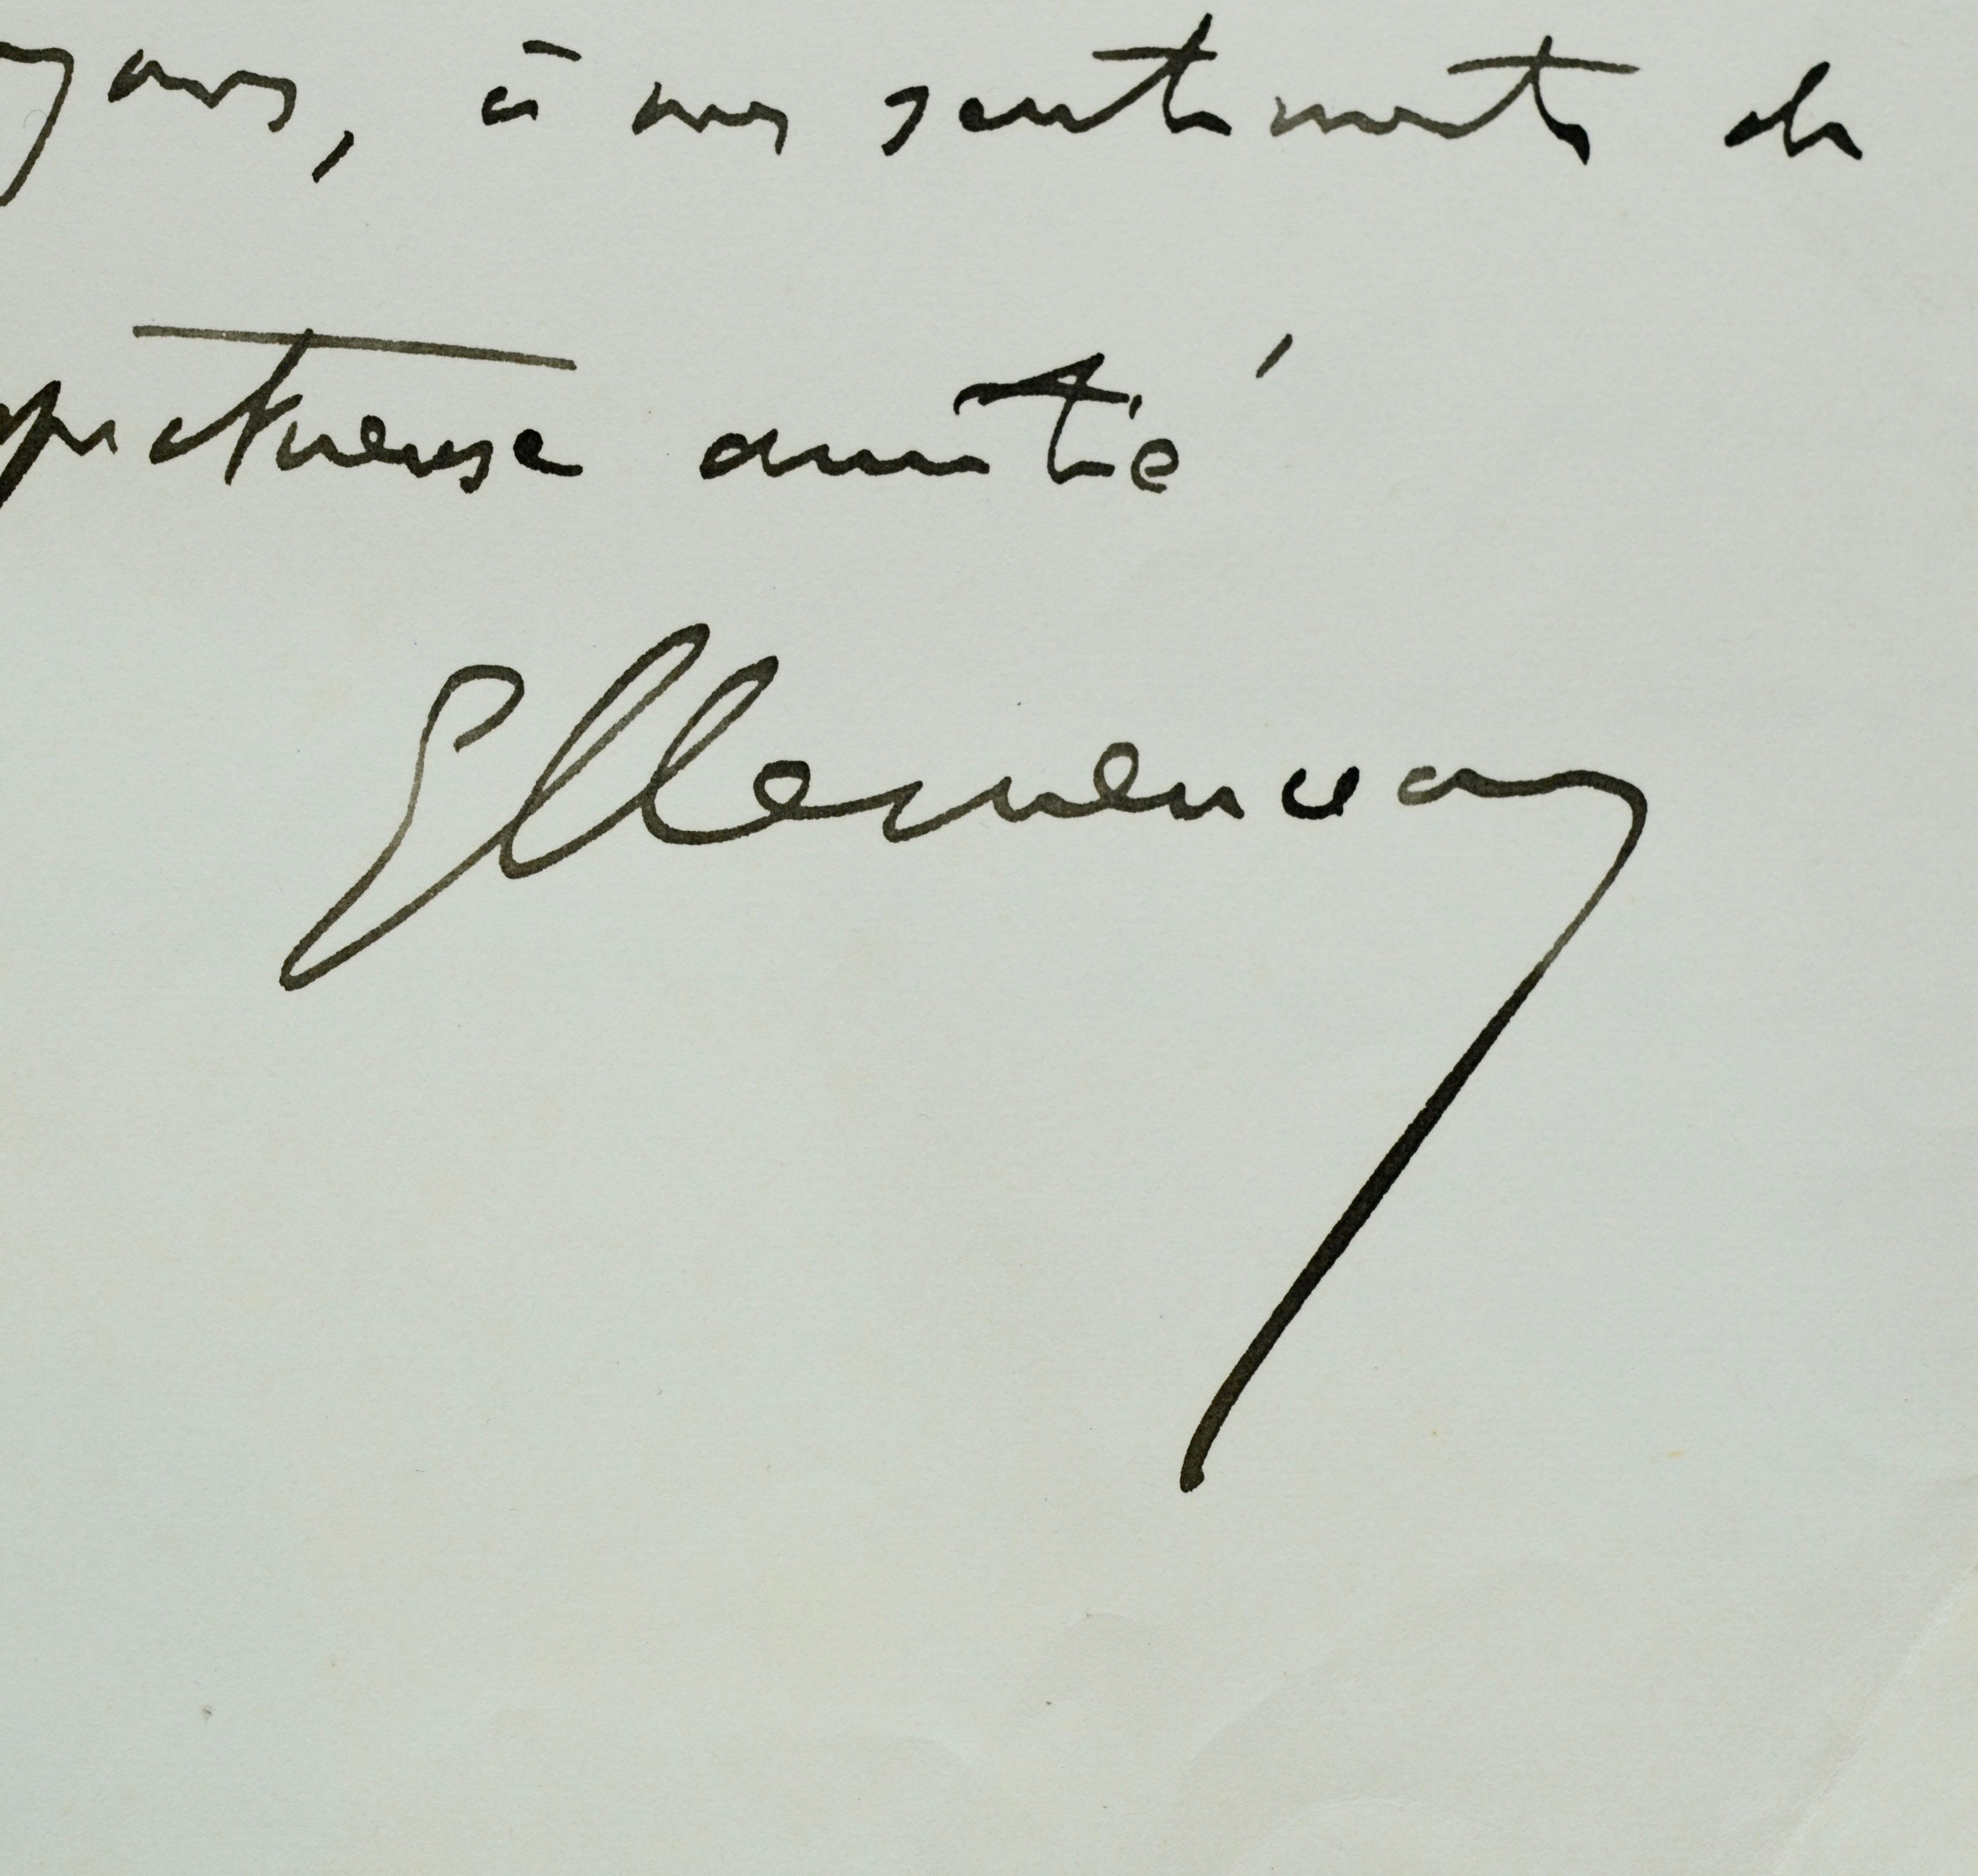 à mes sentiments de
respectueuse amitié
GClemenceau